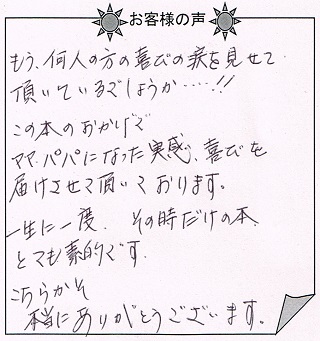 お客様の声
もう、何人の方の喜びの涙を見せて
頂いているでしょうか……!!
この本のおかげで
ママ、パパになった実感、喜びを
届けさせて頂いております。
一生に一度、その時だけの本、
とても素的です。
こちらかそ
本当にありがとうございます。